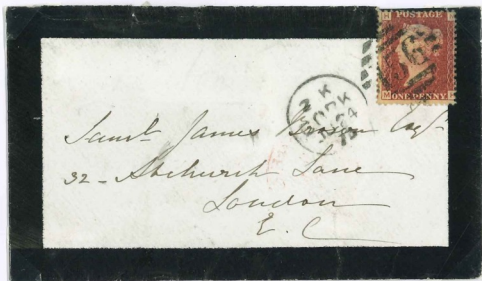 POSTAGE
ONE PENNY
Saml. James Brown Esq.
32 - Abchurch Lane
London
E. C